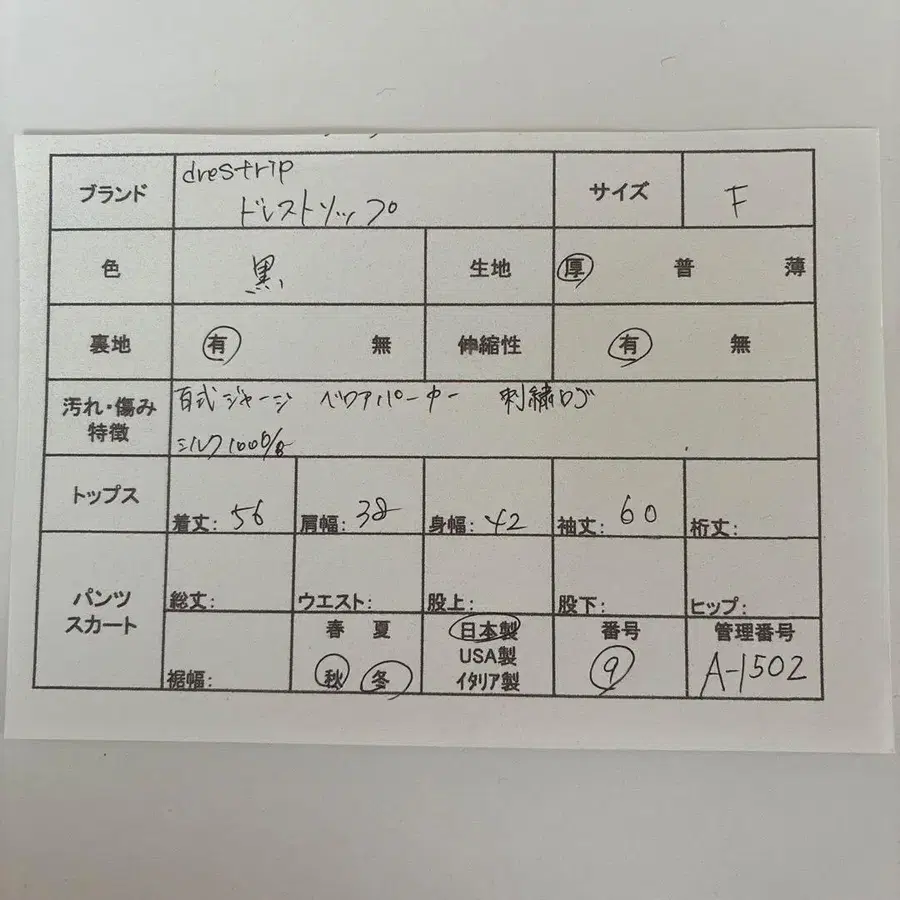 ブランド drestrip サイズ F
ドレストリップ
色 黒 生地 厚 普 薄
裏地 有 無 伸縮性 有 無
汚れ・傷み 百式ジャージ ベロアパーカー 刺繍ロゴ
特徴 シルク100%
トップス 着丈: 56 肩幅: 38 身幅: 42 袖丈: 60 裄丈:
パンツ
スカート
総丈: ウエスト: 股上: 股下: ヒップ:
裾幅: 春 夏 日本製 番号 管理番号
秋 冬 USA製 9 A-1502
イタリア製